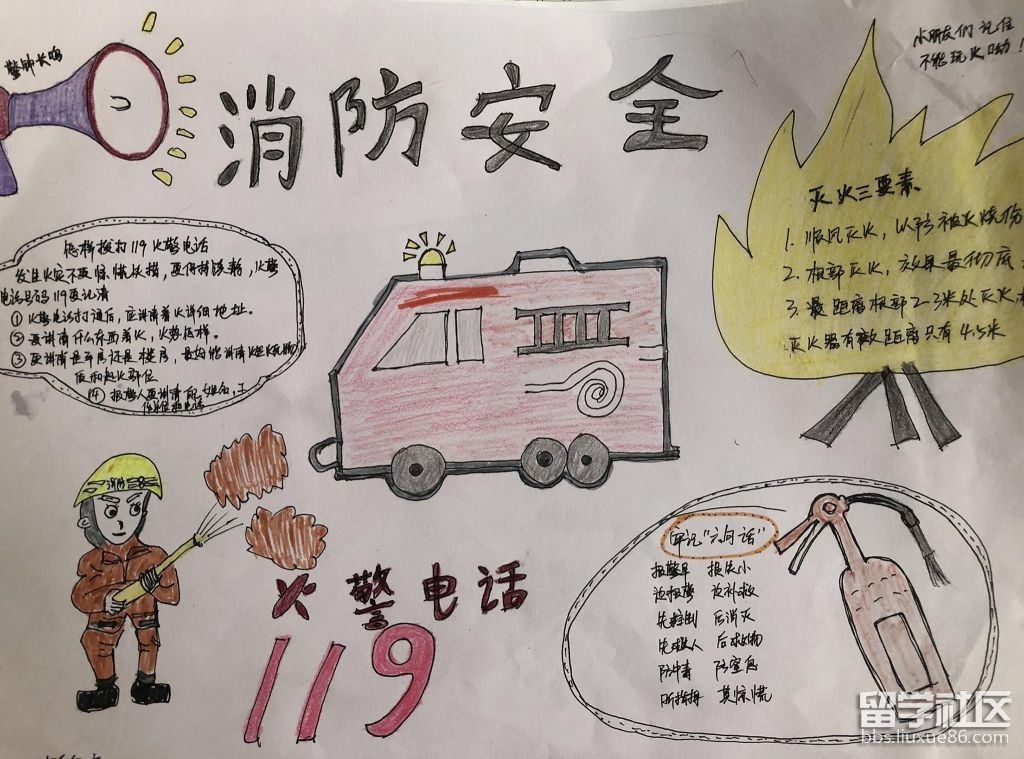 警钟长鸣
消防安全
小朋友们记住
不能玩火呦！
怎样拨打119火警电话
发生火灾不要惊慌失措，要保持镇静，火警
电话号码119要记清
①火警电话打通后，应讲清着火详细地址。
②要讲清什么东西着火，火势怎样。
③要讲清是平房还是楼房，最好能讲清火烧
起火部位
④报警人要讲清姓名，工
作单位和电话
灭火三要素
1.顺风灭火，以防被火烧伤
2.根部灭火，效果最彻底
3.最距离根部2-3米处灭火
灭火器有效距离只有4.5米
消防
火警电话
119
牢记“六句话”
报警早 损失小
边报警 边补救
先控制 后消灭
先救人 后救物
防中毒 防窒息
听指挥 莫惊慌
留学社区
bbs.liuxue86.com